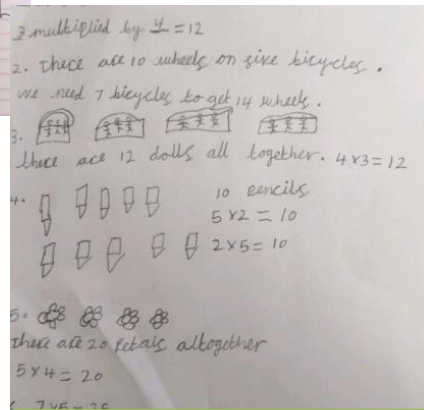 3 multiplied by 4 = 12
2. There are 10 wheels on five bicycles.
we need 7 bicycles to get 14 wheels.
3.
there are 12 dolls all together. 4x3=12
4. 10 pencils
5x2=10
2x5=10
5.
There are 20 Petals altogether
5x4=20
7x5=35